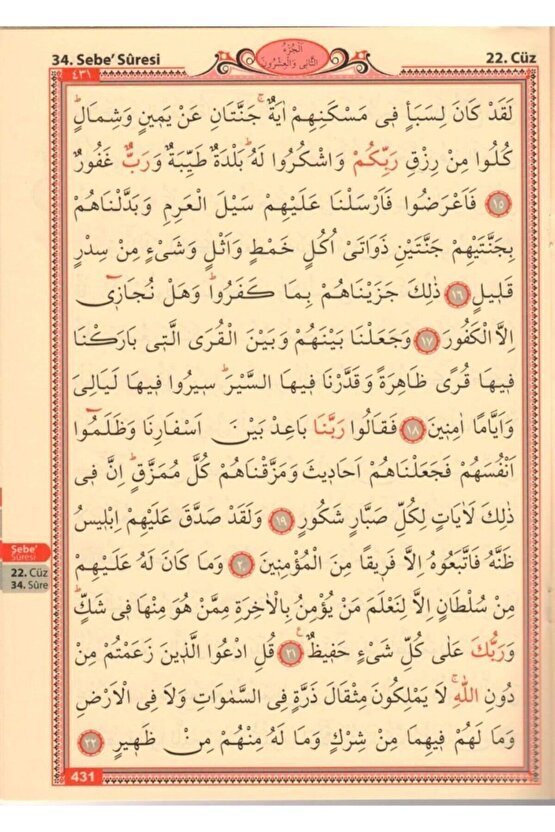 34. Sebe' Sûresi
اَلْجُزْءُ
الثَّانِى وَالْعِشْرُونَ
22. Cüz
٤٣١
لَقَدْ كَانَ لِسَبَأٍ فٖى مَسْكَنِهِمْ اٰيَةٌۚ جَنَّتَانِ عَنْ يَمٖينٍ وَشِمَالٍؕ
كُلُوا مِنْ رِزْقِ رَبِّكُمْ وَاشْكُرُوا لَهُؕ بَلْدَةٌ طَيِّبَةٌ وَرَبٌّ غَفُورٌ
١٥ فَاَعْرَضُوا فَاَرْسَلْنَا عَلَيْهِمْ سَيْلَ الْعَرِمِ وَبَدَّلْنَاهُمْ
بِجَنَّتَيْهِمْ جَنَّتَيْنِ ذَوَاتَىْ اُكُلٍ خَمْطٍ وَاَثْلٍ وَشَىْءٍ مِنْ سِدْرٍ
قَلٖيلٍ ١٦ ذٰلِكَ جَزَيْنَاهُمْ بِمَا كَفَرُواؕ وَهَلْ نُجَازٖٓى
اِلَّا الْكَفُورَ ١٧ وَجَعَلْنَا بَيْنَهُمْ وَبَيْنَ الْقُرَى الَّتٖى بَارَكْنَا
فٖيهَا قُرًى ظَاهِرَةً وَقَدَّرْنَا فٖيهَا السَّيْرَؕ سٖيرُوا فٖيهَا لَيَالِىَ
وَاَيَّامًا اٰمِنٖينَ ١٨ فَقَالُوا رَبَّنَا بَاعِدْ بَيْنَ اَسْفَارِنَا وَظَلَمُٓوا
اَنْفُسَهُمْ فَجَعَلْنَاهُمْ اَحَادٖيثَ وَمَزَّقْنَاهُمْ كُلَّ مُمَزَّقٍؕ اِنَّ فٖى
ذٰلِكَ لَاٰيَاتٍ لِكُلِّ صَبَّارٍ شَكُورٍ ١٩ وَلَقَدْ صَدَّقَ عَلَيْهِمْ اِبْلٖيسُ
ظَنَّهُ فَاتَّبَعُوهُ اِلَّا فَرٖيقًا مِنَ الْمُؤْمِنٖينَ ٢٠ وَمَا كَانَ لَهُ عَلَيْهِمْ
مِنْ سُلْطَانٍ اِلَّا لِنَعْلَمَ مَنْ يُؤْمِنُ بِالْاٰخِرَةِ مِمَّنْ هُوَ مِنْهَا فٖى شَكٍّؕ
وَرَبُّكَ عَلٰى كُلِّ شَىْءٍ حَفٖيظٌ ٢١ قُلِ ادْعُوا الَّذٖينَ زَعَمْتُمْ مِنْ
دُونِ اللّٰهِۚ لَا يَمْلِكُونَ مِثْقَالَ ذَرَّةٍ فِى السَّمٰوَاتِ وَلَا فِى الْاَرْضِ
وَمَا لَهُمْ فٖيهِمَا مِنْ شِرْكٍ وَمَا لَهُ مِنْهُمْ مِنْ ظَهٖيرٍ ٢٢
Sebe'
Sûresi
22. Cüz
34. Sûre
431